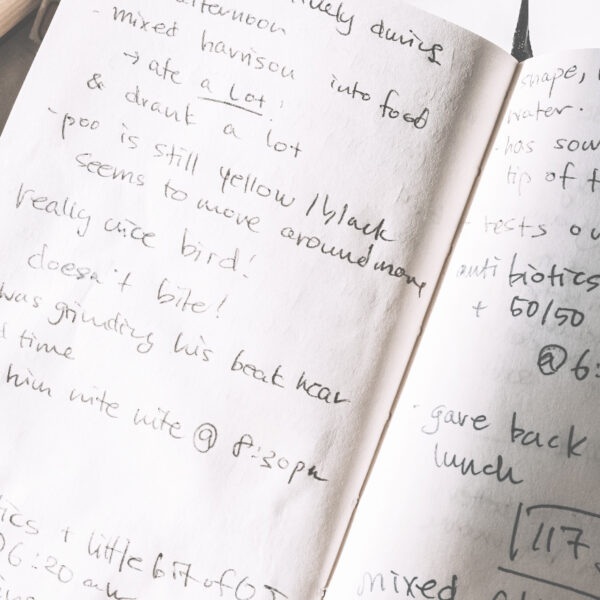 afternoon
during
- mixed harrison into food
→ ate a lot!
& drank a lot
- poo is still yellow / black
seems to move around more
really nice bird!
doesn't bite!
was grinding his beak near
time
him nite nite @ 8:30pm
+ little bit of
6:20 am
shape,
water.
- has
tip of
- rests
antibiotics
+ 50/50
@ 6:
- gave back
lunch
117
mixed